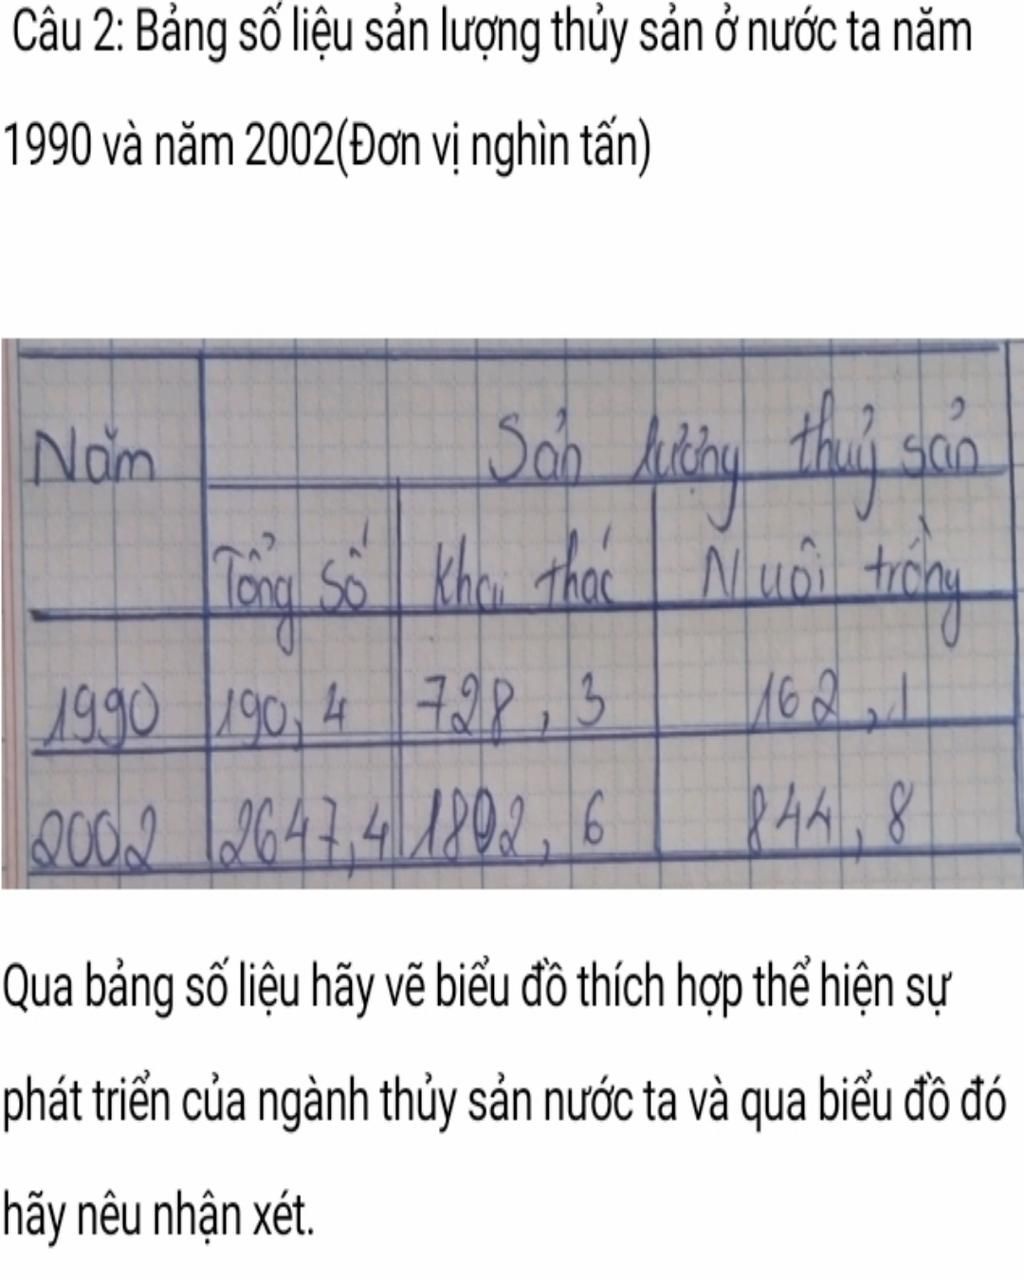 Câu 2: Bảng số liệu sản lượng thủy sản ở nước ta năm
1990 và năm 2002(Đơn vị nghìn tấn)
Năm Sản lượng thuỷ sản
Tổng số Khai thác Nuôi trồng
1990 190,4 728,3 162,1
2002 2647,4 1802,6 844,8
Qua bảng số liệu hãy vẽ biểu đồ thích hợp thể hiện sự
phát triển của ngành thủy sản nước ta và qua biểu đồ đó
hãy nêu nhận xét.